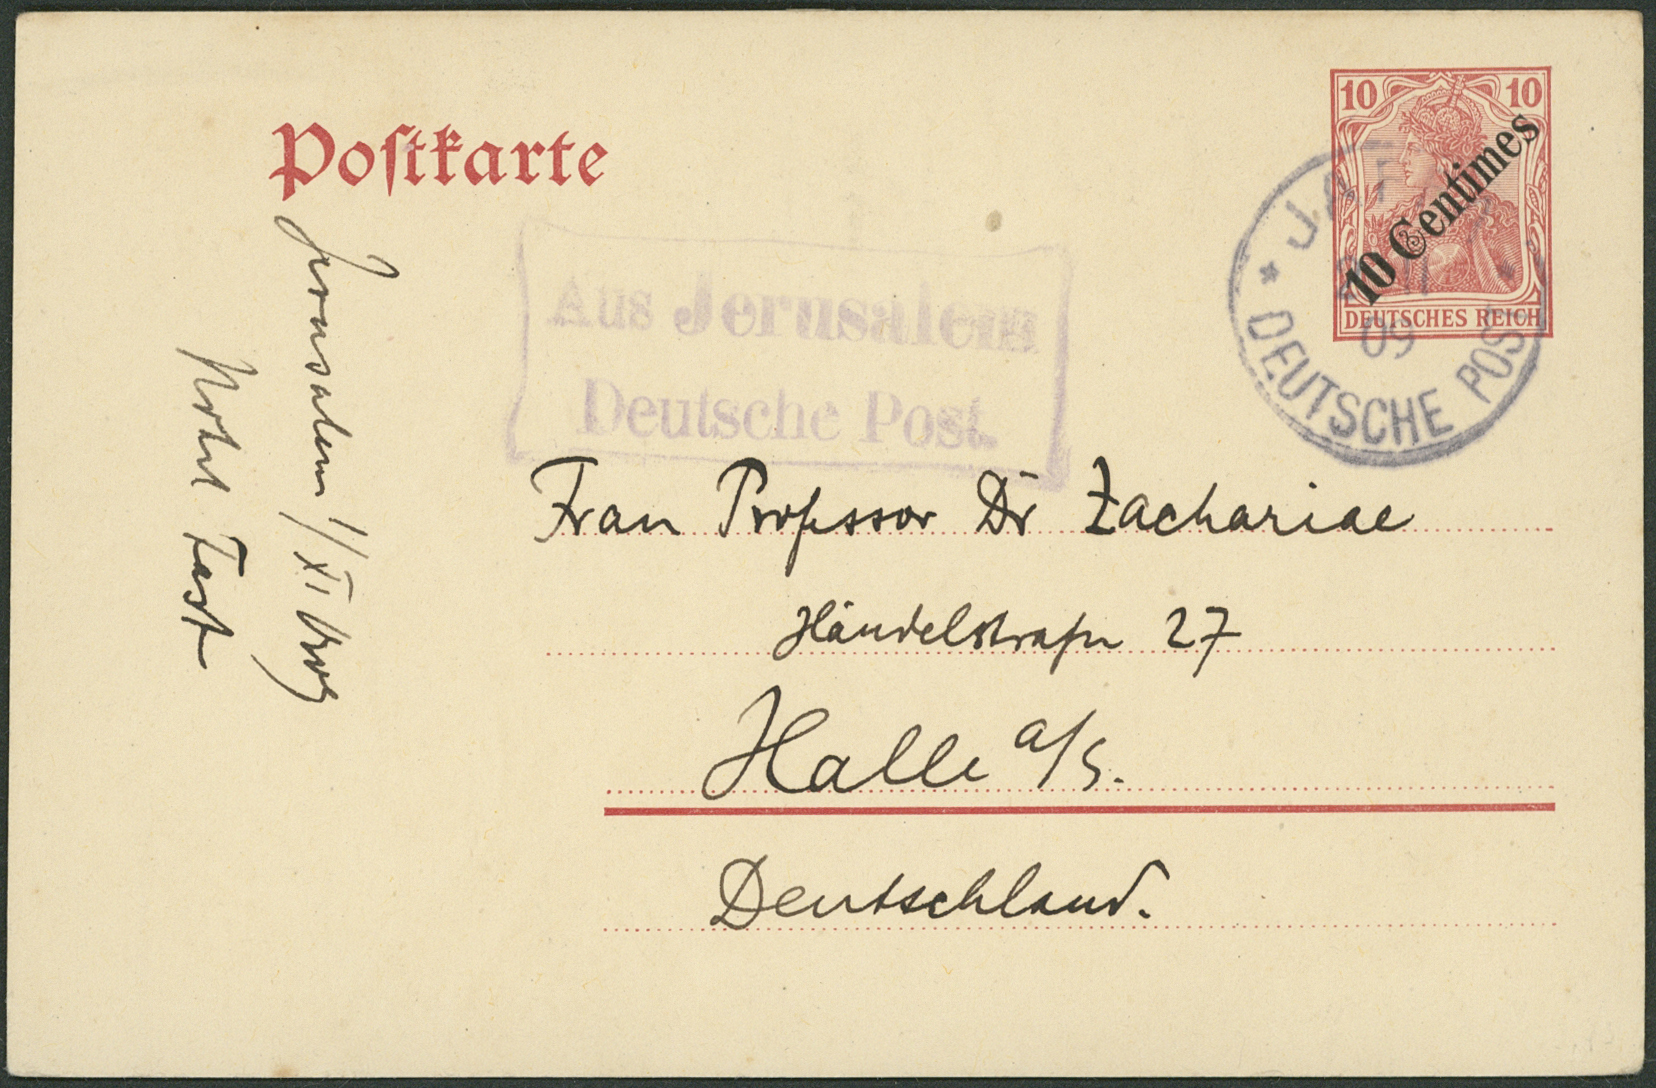 Postkarte
10 10
10 Centimes
DEUTSCHES REICH
JAF
09
DEUTSCHE POST
Aus Jerusalem
Deutsche Post.
Jerusalem 1/XI
Hotel Fast
Frau Professor Dr Zachariae
Händelstraße 27
Halle a/S.
Deutschland.